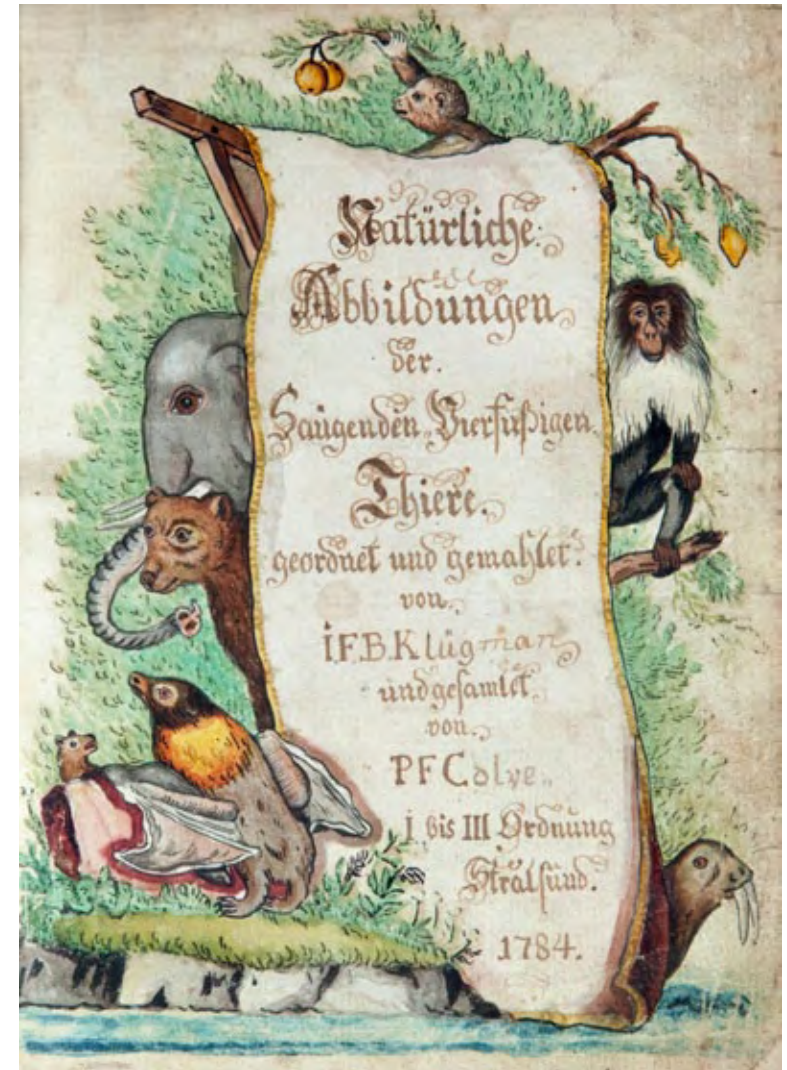 Natürliche
Abbildungen
der.
Saügenden Vierfüßigen
Thiere.
geordnet und gemahlet.
von.
I.F.B.Klügman
und gesamlet.
von.
PFColve
I bis III Ordnung
Stralsund.
1784.